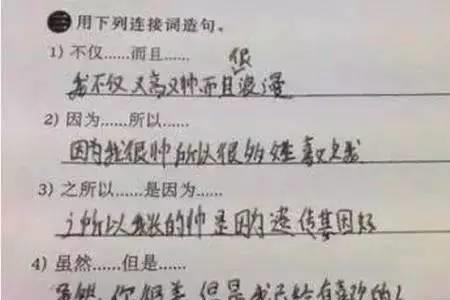 三 用下列连接词造句。
1) 不仅……而且……
很
我不仅又高又帅而且浪漫
2) 因为……所以……
因为我很帅所以很多姓喜欢我
3) 之所以……是因为……
之所以我长的帅是因为遗传基因好
4) 虽然……但是……
虽然你很美 但是我已经有喜欢的人